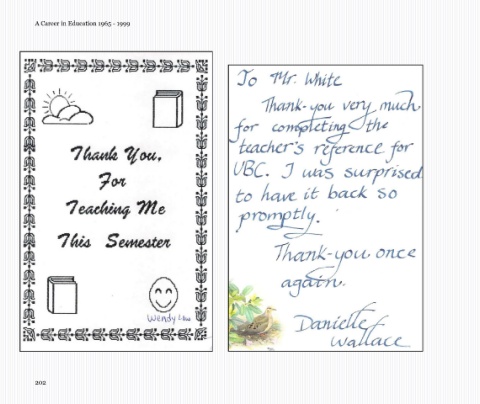 A Career in Education 1965 - 1999
Thank You,
For
Teaching Me
This Semester
Wendy Lau
To Mr. White
Thank-you very much
for completing the
teacher's reference for
UBC. I was surprised
to have it back so
promptly.
Thank-you once
again.
Danielle
Wallace
202